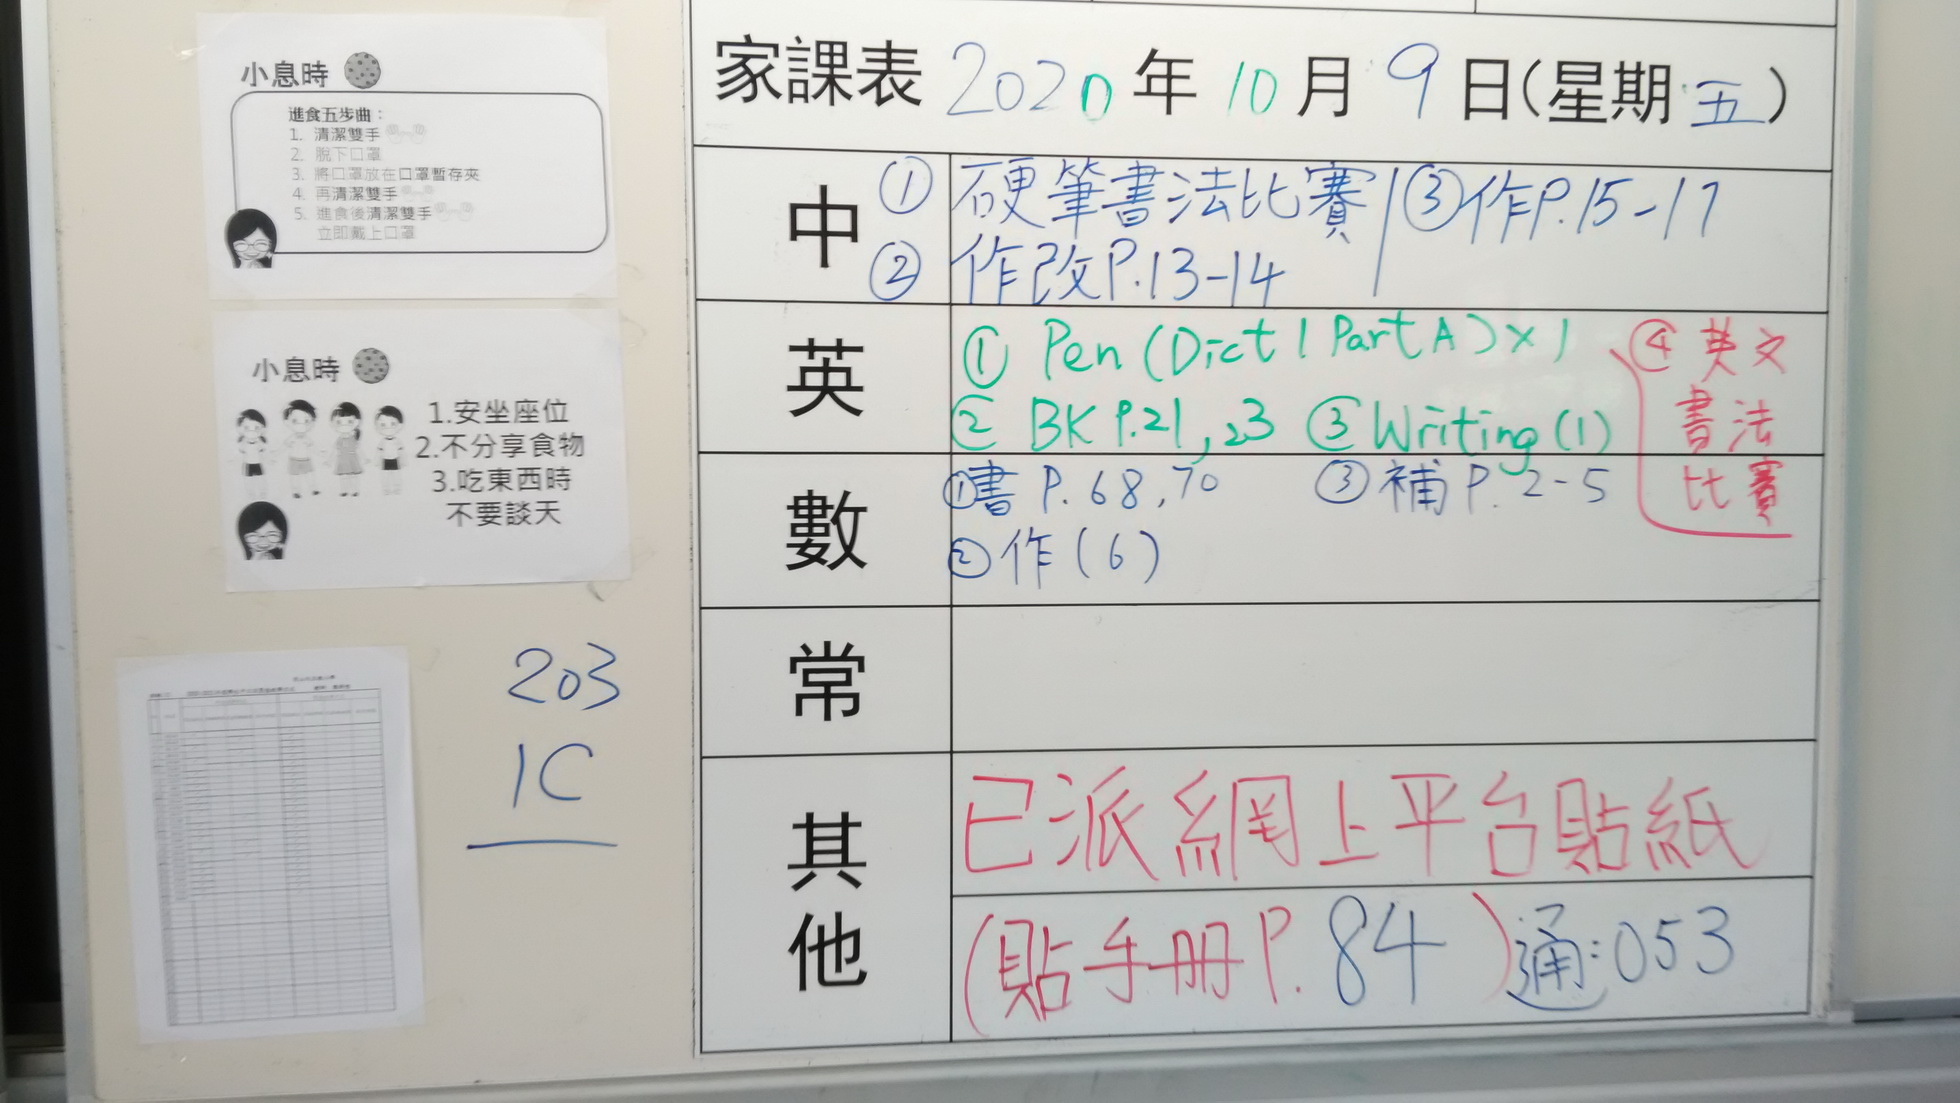 小息時
進食五步曲：
1. 清潔雙手
2. 脫下口罩
3. 將口罩放在口罩暫存夾
4. 再清潔雙手
5. 進食後清潔雙手
立即戴上口罩
小息時
1.安坐座位
2.不分享食物
3.吃東西時
不要談天
203
1C
家課表 2020 年 10 月 9 日(星期 五)
中 ① 硬筆書法比賽 / ③作P.15-17
② 作改P.13-14
英 ① Pen (Dict 1 Part A) x 1
② BK P.21, 23 ③ Writing (1)
④ 英文
書法
比賽
數 ①書 P. 68, 70 ③ 補 P. 2-5
②作 (6)
常
其他 已派網上平台貼紙
(貼手冊P. 84) 通:053